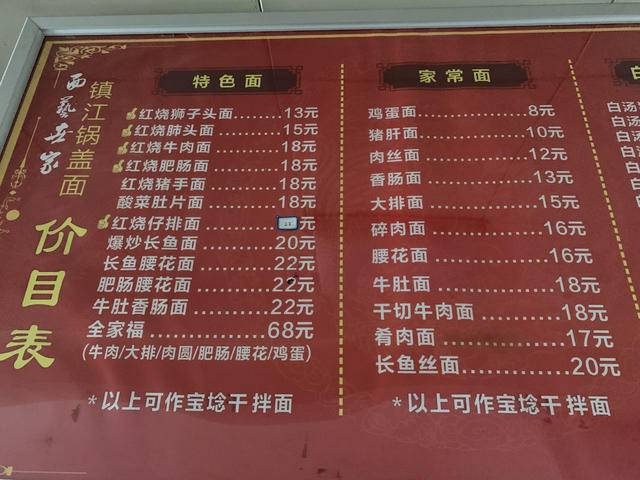 西艺面家
镇江锅盖面
价目表
特色面
红烧狮子头面........13元
红烧肺头面..........15元
红烧牛肉面..........18元
红烧肥肠面..........18元
红烧猪手面..........18元
酸菜肚片面..........18元
红烧仔排面..........元
爆炒长鱼面..........20元
长鱼腰花面..........22元
肥肠腰花面..........22元
牛肚香肠面..........22元
全家福..............68元
(牛肉/大排/肉圆/肥肠/腰花/鸡蛋)
*以上可作宝埝干拌面
家常面
鸡蛋面..............8元
猪肝面..............10元
肉丝面..............12元
香肠面..............13元
大排面..............15元
碎肉面..............16元
腰花面..............16元
牛肚面..............18元
干切牛肉面..........18元
肴肉面..............17元
长鱼丝面............20元
*以上可作宝埝干拌面
白
白汤
白汤
白汤
白汤
白汤